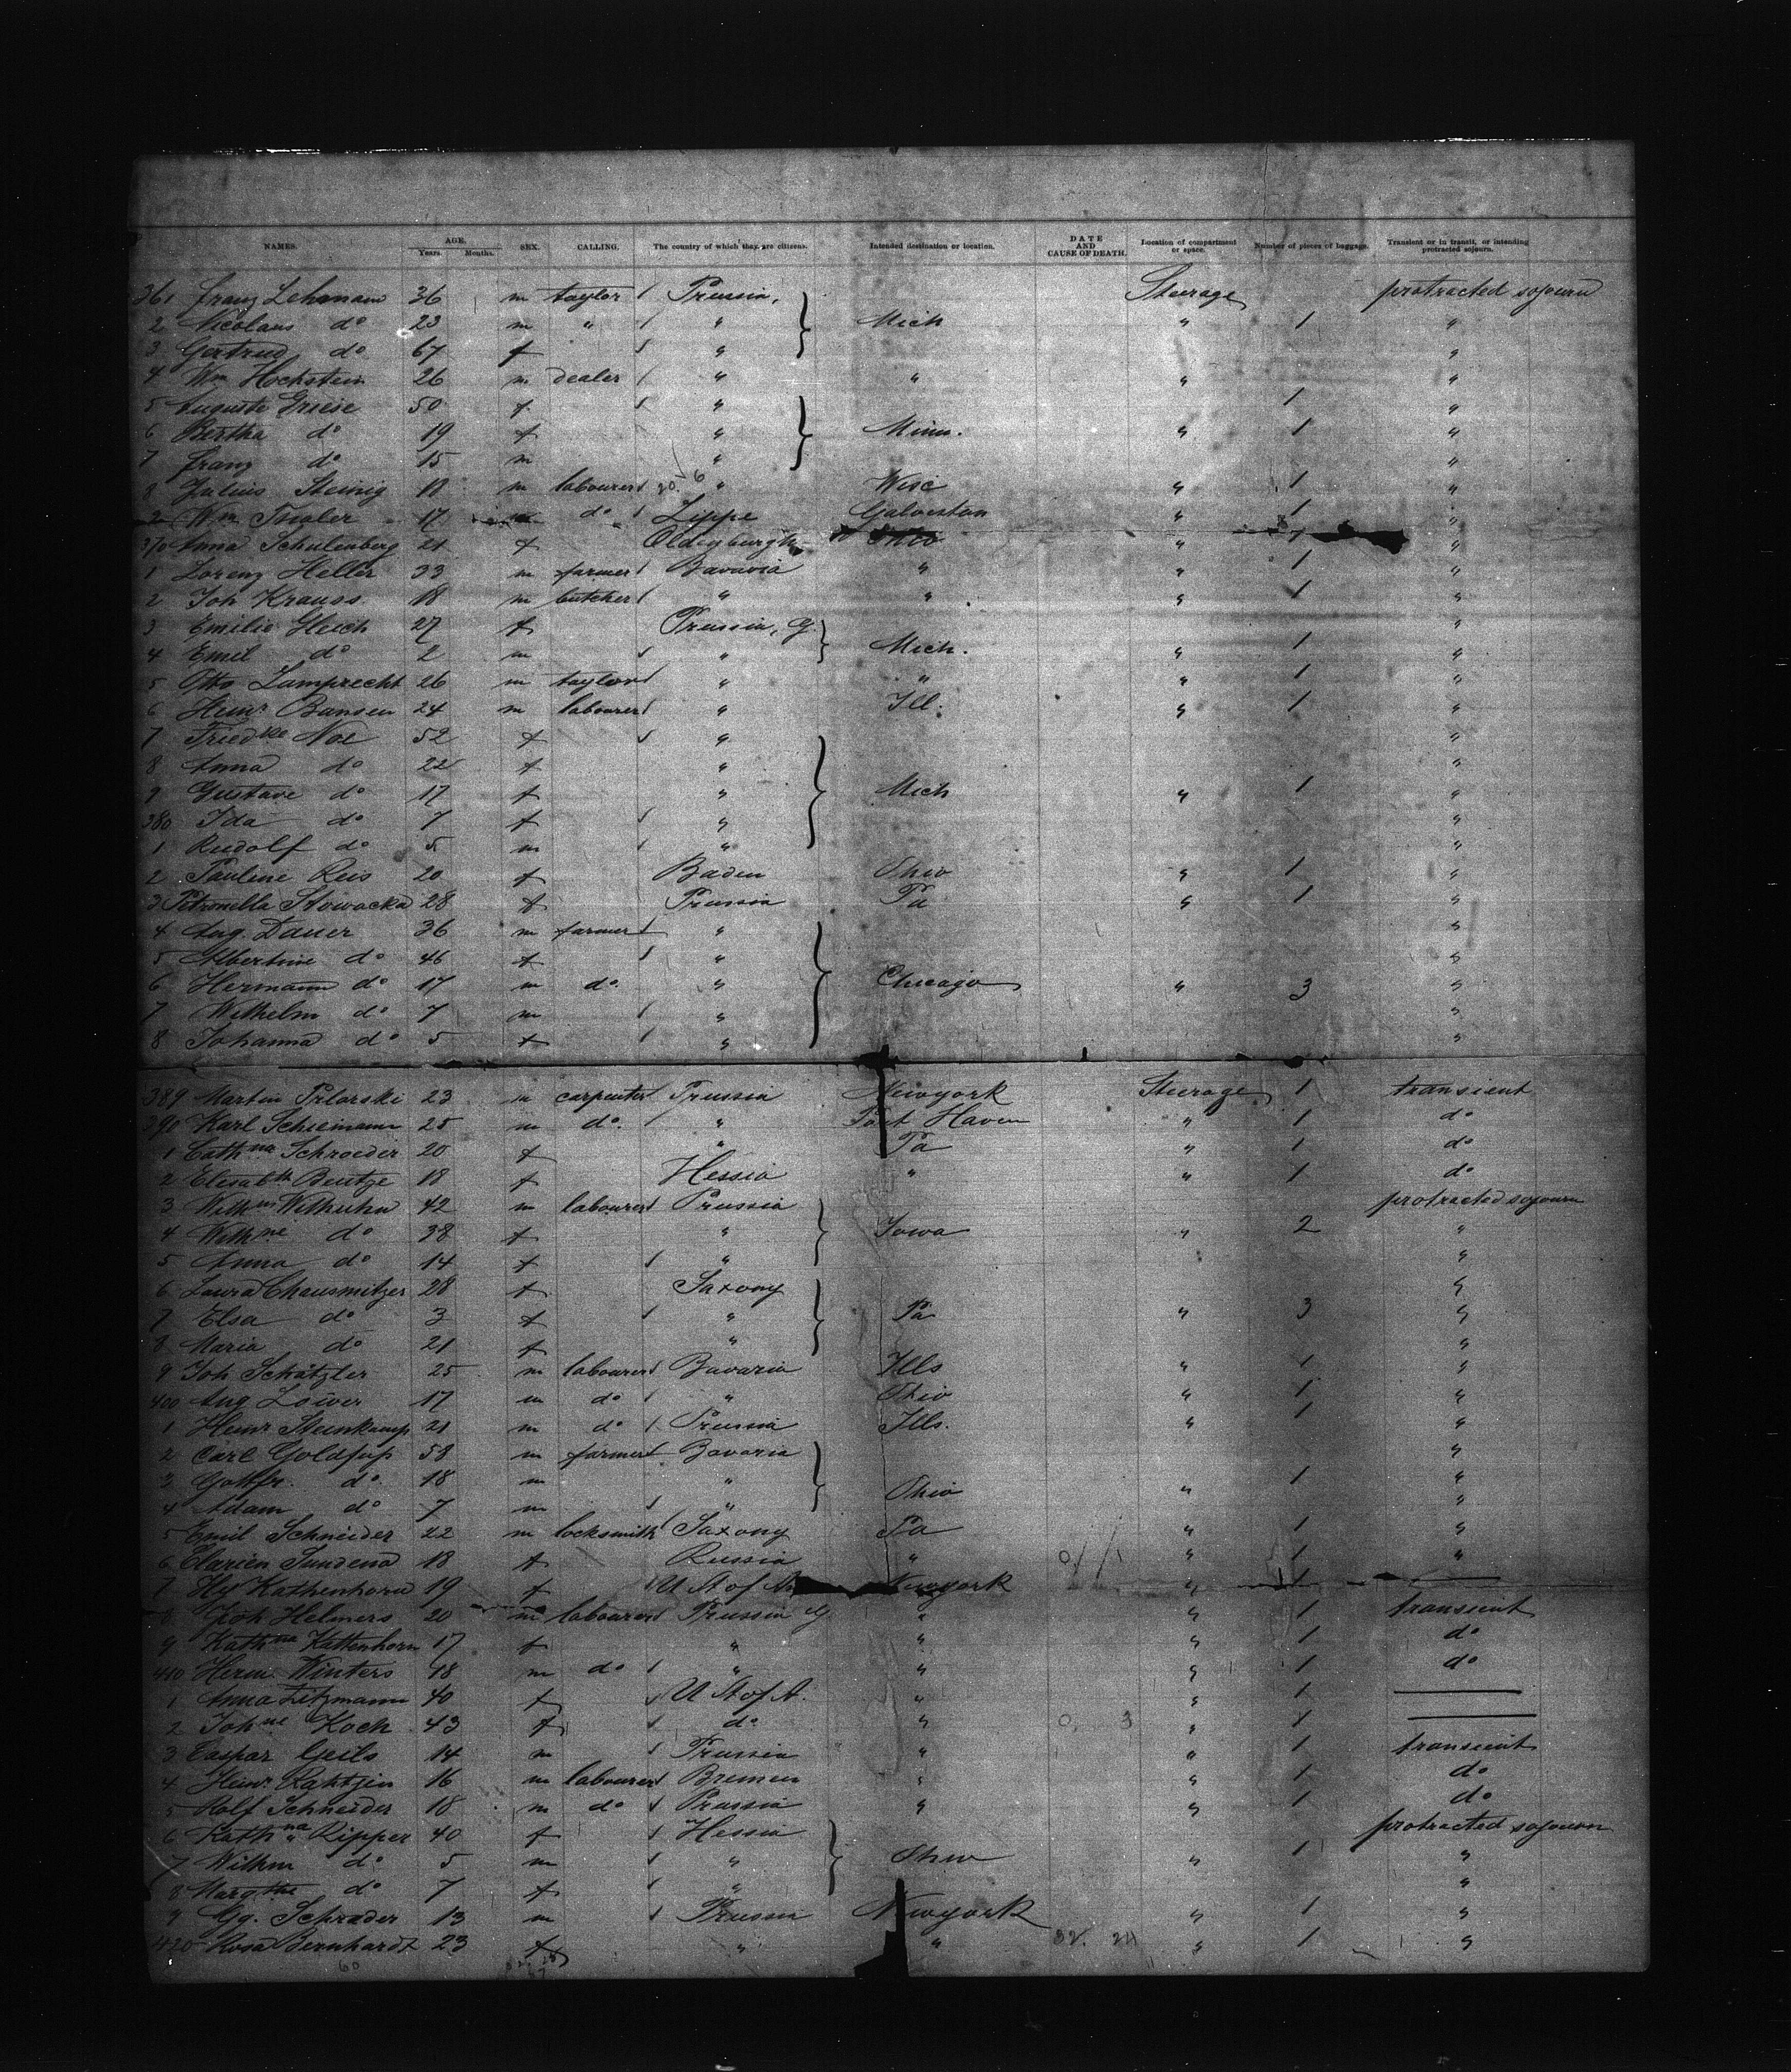 NAMES. AGE. SEX. CALLING. The country of which they are citizens. Intended destination or location. DATE AND CAUSE OF DEATH. Location of compartment or space. Number of pieces of baggage. Transient or in transit, or intending protracted sojourn.
Years. Months.
361 Franz Lehmann 36 m taylor Prussia, Steerage protracted sojourn
2 Nicolaus do 23 m " " Mich " 1 "
3 Gertrud do 67 f " "
4 Wm Hochstein 26 m dealer " " " "
5 Auguste Griese 50 f " 1 "
6 Bertha do 19 f " Minn. " 1 "
7 Franz do 15 m " "
8 Julius Steinig 18 m labourer " Wisc " 1 "
Wm 17 m do Lippe Galveston " 1 "
370 Anna Schulenberg 21 f Oldenburgh Ohio " 1 "
1 Lorenz Heller 33 m farmer Bavaria " " 1 "
2 Joh Krauss 18 m butcher " " " 1 "
3 Emilie 27 f Prussia, "
4 Emil do 2 m " Mich. " 1 "
5 Otto Lamprecht 26 m taylor " " " 1 "
6 Heinr Bansen 24 m labourer " Ill. " 1 "
7 Friedke Noe 52 f " "
8 Anna do 22 f " "
9 Gustave do 17 f " Mich " 1 "
380 Ida do 7 f " "
1 Rudolf do 5 m " "
2 Pauline Reis 20 f Baden Ohio " 1 "
3 Petronella Slowacka 28 f Prussia Pa " 1 "
4 Aug. Dauer 36 m farmer " "
5 Albertine do 46 f " "
6 Hermann do 17 m do. " Chicago " 3 "
7 Wilhelm do 7 m " "
8 Johanna do 5 f " "
389 Martin 23 m carpenter Prussia Newyork Steerage 1 transient
390 Karl Schiemann 25 m do. " Haven " 1 do
1 Cathna Schroeder 20 f " Pa " 1 do
2 Elisabth Bentze 18 f Hessia " " 1 do
3 Wilhm Wilhuhn 42 m labourer Prussia protracted sojourn
4 Wilhne do 38 f " Iowa " 2 "
5 Anna do 14 f " "
6 Laura Chausmitzer 28 f Saxony "
7 Elsa do 3 f " Pa " 3 "
8 Maria do 21 f " "
9 Joh Schätzler 25 m labourer Bavaria Ills " 1 "
400 Aug Löwer 17 m do " Ohio " 1 "
1 Heinr Steinkamp 21 m do Prussia Ills. " 1 "
2 Carl Goldfuss 58 m farmer Bavaria "
3 Gottfr. do. 18 m " 1 "
4 Adam do 7 m " Ohio " "
5 Emil Schneider 22 m locksmith Saxony Pa " 1 "
6 18 f Russia " " 1 "
7 Hy Kathenhorn 19 f U St of A. Newyork " 1
8 Joh Helmers 20 m labourer Prussia " " 1 transient
9 Kathna Kattenhorn 17 f " " " 1 do
410 Herm Winters 48 m do " " " 1 do
1 Anna Litzmann 40 f U St of A. " " 1
2 Johne Koch 43 f do " " 1
3 Caspar Geils 14 m Prussia " " 1 transient
4 Heinr 16 m labourer Bremen " " 1 do
5 Schneider 18 m do Prussia " " 1 do
6 Kathna Ripper 40 f Hessia protracted sojourn
7 Wilhm do. 5 m " Ohio " 1 "
8 Margthe do 7 f " "
9 Gg. Schrader 13 m Prussia Newyork " 1 "
420 Rosa Bernhardt 23 f " " " 1 "
60